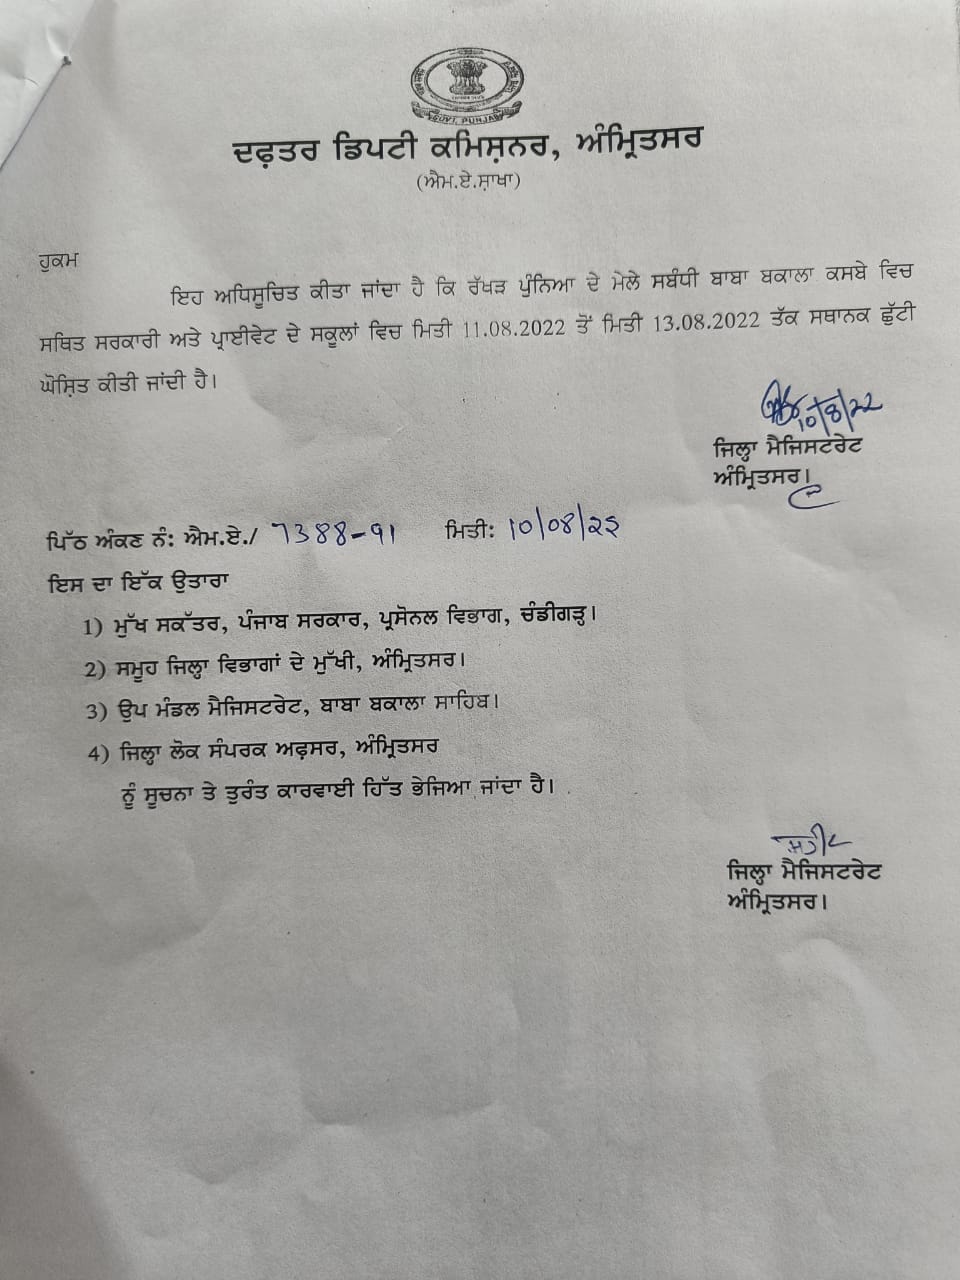 GOVT. PUNJAB
ਦਫ਼ਤਰ ਡਿਪਟੀ ਕਮਿਸ਼ਨਰ, ਅੰਮ੍ਰਿਤਸਰ
(ਐਮ.ਏ.ਸ਼ਾਖਾ)
ਹੁਕਮ
ਇਹ ਅਧਿਸੂਚਿਤ ਕੀਤਾ ਜਾਂਦਾ ਹੈ ਕਿ ਰੱਖੜ ਪੁੰਨਿਆ ਦੇ ਮੇਲੇ ਸਬੰਧੀ ਬਾਬਾ ਬਕਾਲਾ ਕਸਬੇ ਵਿਚ
ਸਥਿਤ ਸਰਕਾਰੀ ਅਤੇ ਪ੍ਰਾਈਵੇਟ ਦੇ ਸਕੂਲਾਂ ਵਿਚ ਮਿਤੀ 11.08.2022 ਤੋਂ ਮਿਤੀ 13.08.2022 ਤੱਕ ਸਥਾਨਕ ਛੁੱਟੀ
ਘੋਸ਼ਿਤ ਕੀਤੀ ਜਾਂਦੀ ਹੈ।
10/8/22
ਜਿਲ੍ਹਾ ਮੈਜਿਸਟਰੇਟ
ਅੰਮ੍ਰਿਤਸਰ।
ਪਿੱਠ ਅੰਕਣ ਨੰ: ਐਮ.ਏ./ 7388-91 ਮਿਤੀ: 10/08/22
ਇਸ ਦਾ ਇੱਕ ਉਤਾਰਾ
1) ਮੁੱਖ ਸਕੱਤਰ, ਪੰਜਾਬ ਸਰਕਾਰ, ਪ੍ਰਸੋਨਲ ਵਿਭਾਗ, ਚੰਡੀਗੜ੍ਹ।
2) ਸਮੂਹ ਜਿਲ੍ਹਾ ਵਿਭਾਗਾਂ ਦੇ ਮੁੱਖੀ, ਅੰਮ੍ਰਿਤਸਰ।
3) ਉਪ ਮੰਡਲ ਮੈਜਿਸਟਰੇਟ, ਬਾਬਾ ਬਕਾਲਾ ਸਾਹਿਬ।
4) ਜਿਲ੍ਹਾ ਲੋਕ ਸੰਪਰਕ ਅਫ਼ਸਰ, ਅੰਮ੍ਰਿਤਸਰ
ਨੂੰ ਸੂਚਨਾ ਤੇ ਤੁਰੰਤ ਕਾਰਵਾਈ ਹਿੱਤ ਭੇਜਿਆ ਜਾਂਦਾ ਹੈ।
ਜਿਲ੍ਹਾ ਮੈਜਿਸਟਰੇਟ
ਅੰਮ੍ਰਿਤਸਰ।